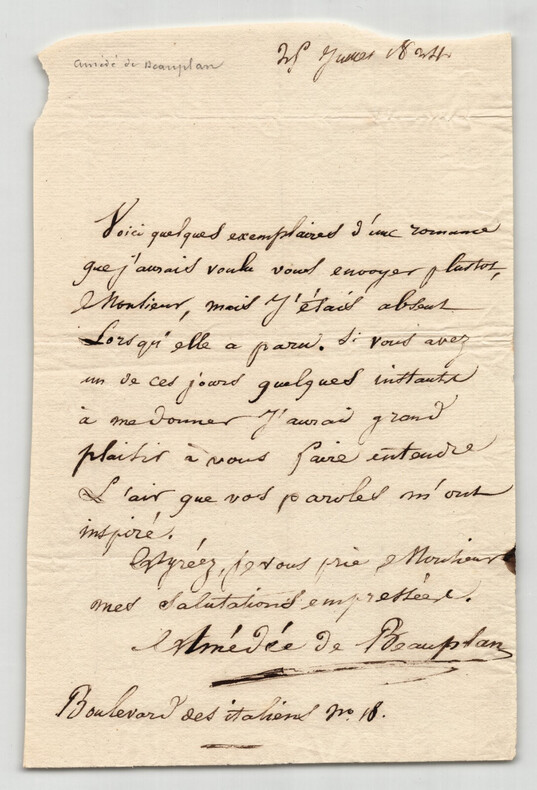 Amédé de Beauplan
25 1824
Voici quelques exemplaires d'une romance
que j'aurais voulu vous envoyer plustot,
Monsieur, mais J'étais absent
Lorsqu'elle a paru. Si vous avez
un de ces jours quelques instants
à me donner J'aurai grand
plaisir à vous faire entendre
L'air que vos paroles m'ont
inspiré.
Agréez, je vous prie Monsieur
mes salutations empressées.
Amédée de Beauplan
Boulevard des italiens no. 18.